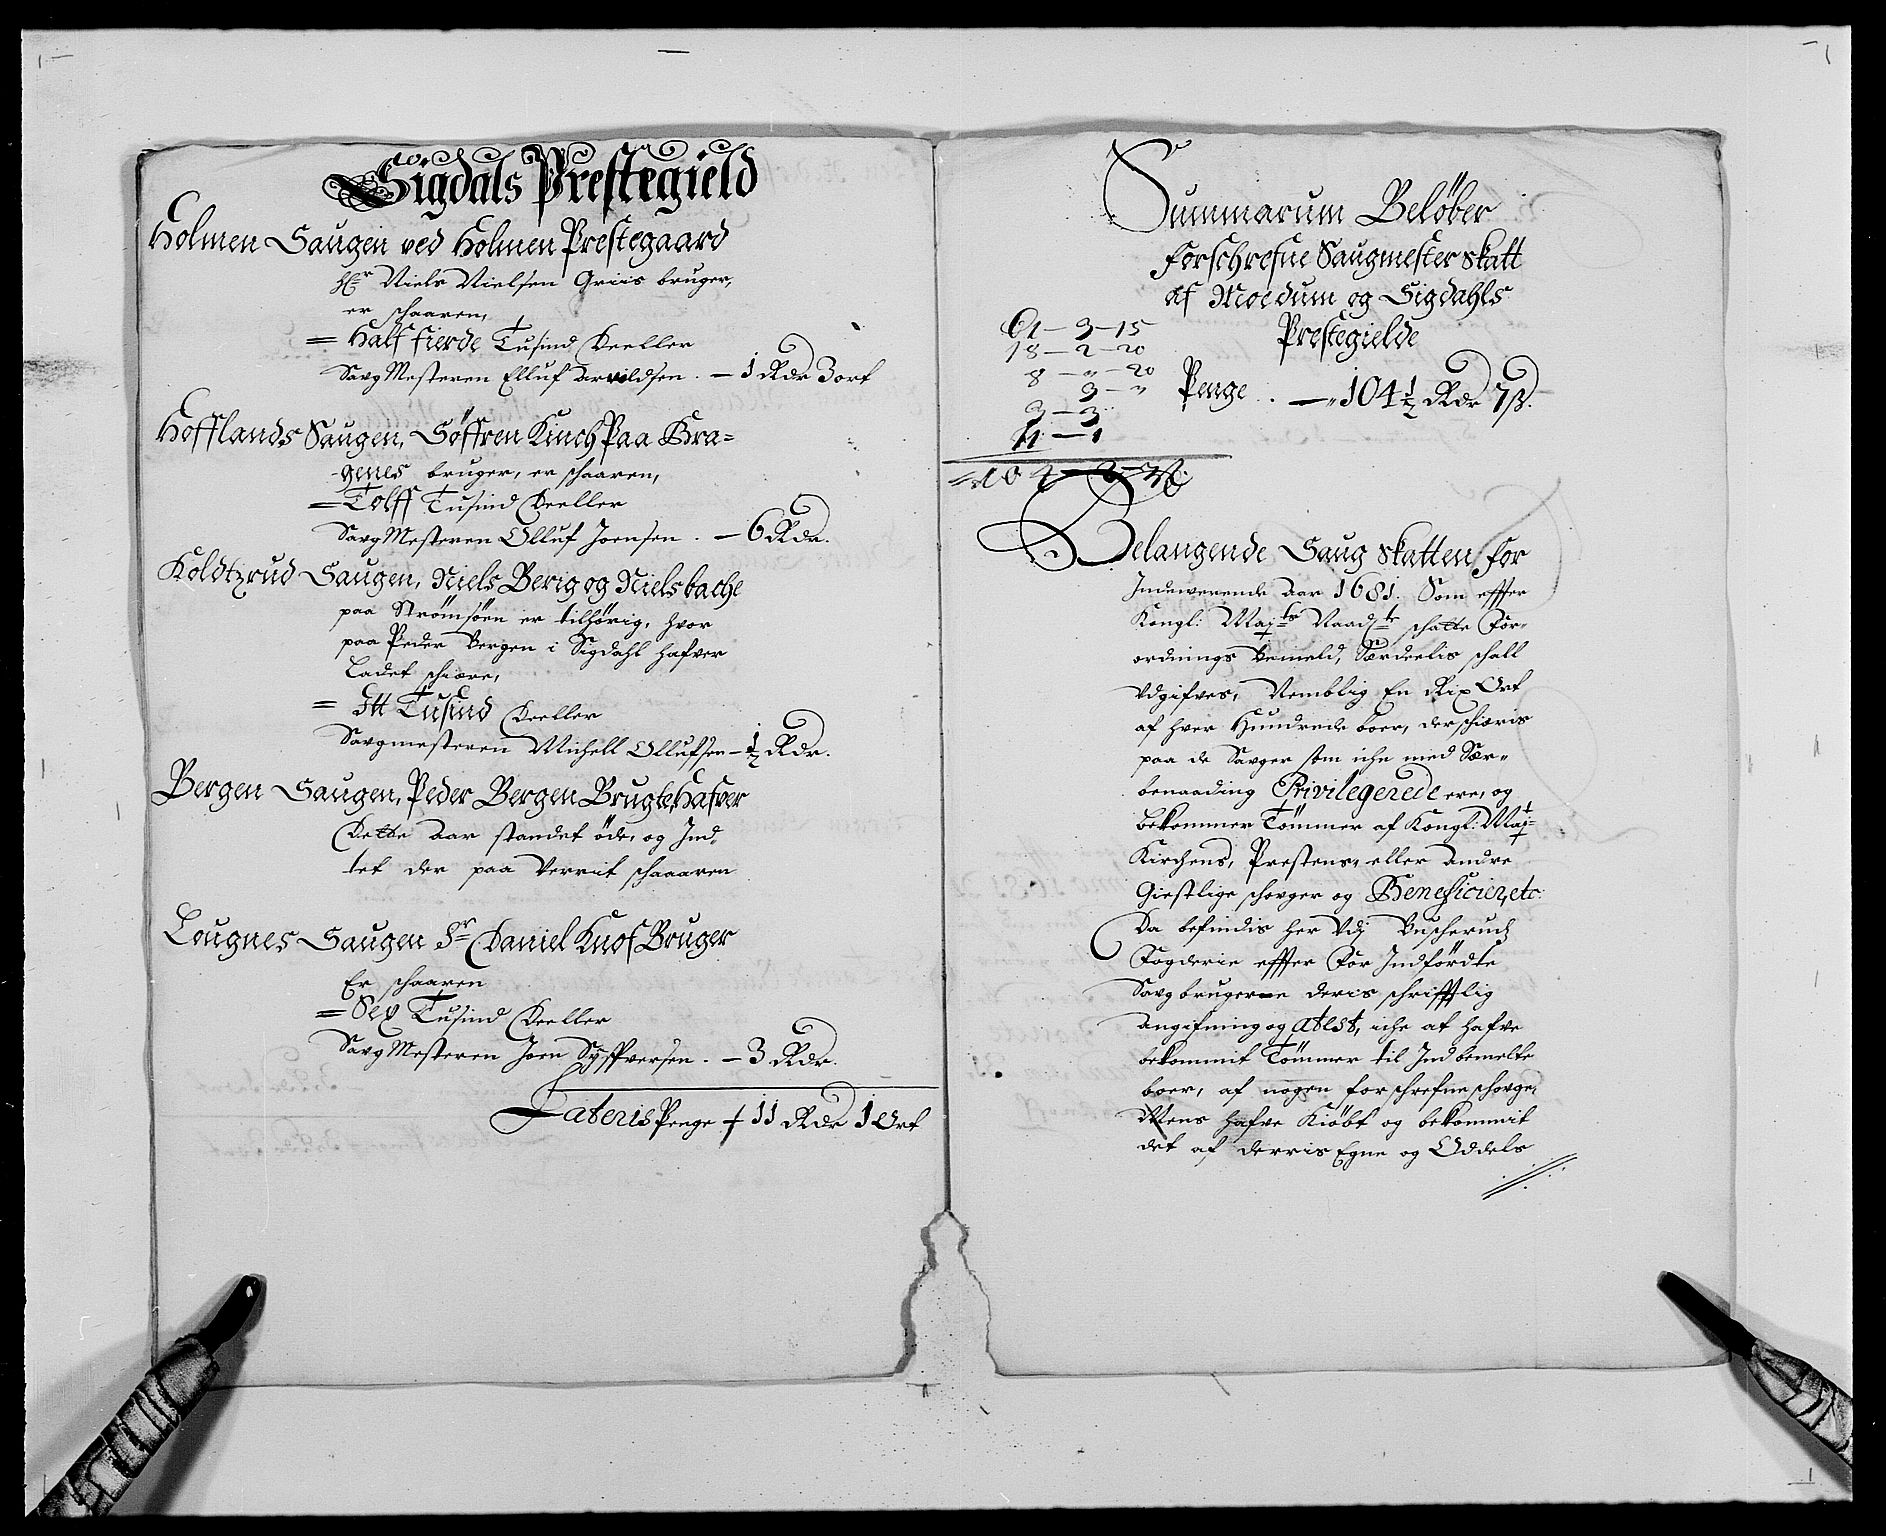 Sigdals Prestegield
Holmen Saugen ved Holmen Prestegaard
Hr Niels Nielsen Griis bruger,
er schaaren,
= Half fierde Tusind Deeller
Saug Mesteren Elluf Darvildsen . — 1 Rdr 3 ort
Hofflands Saugen, Søffren Kinch Paa Bra=
genes bruger, er schaaren,
= Tolff Tusind Deeller
Saug Mesteren Olluf Joensen . — 6 Rdr.
Koldtzrud Saugen, Niels Berig og Niels bache
paa Strømsøen er tilhørig, hvor
paa Peder Bergen i Sigdahl hafver
Ladet schiære,
= Itt Tusind Deeller
Saugmesteren Michell Ollufsen — ½ Rdr.
Bergen Saugen, Peder Bergen Brugte, Hafver
Dette Aar standet øde, og Ind,
tet der paa Verrit schaaaren
Lougnes Saugen Sr Daniel Knof Bruger
Er schaaren
= Sex Tusind Deeller
Saug Mesteren Joen Syffversen . — 3 Rdr.
Lateris Penge 11 Rdr 1 Ort
Summarum Beløber
forschrefne Saugmester skatt
af Moedum og Sigdahls
Prestegielde
61 — 3 — 15
18 — 2 — 20
8 — " — 20
3 — "
3 — 3
11 — 1
Penge . . — " 104 ½ Rdr 7 ß.
Belangende Saug skatten for
Indeverende Aar 1681. Som effter
Kongl: Mayts Naadte schatte For-
ordnings Bemeld, Særdeelis schall
Udgifves, Nemblig En Rix Ort
af hver Hundrede boer, der schiæris
paa de Sauger som iche med Sær-
benaading Privilegerede ere, og
bekommer Tømmer af Kongl: May
Kirchens, Prestens, eller andre
Giestlige schouger og Beneficier, etc:
Da befindis her Udj Buscherud
Fogderie effter For Indførdte
Saugbrugerne deris schrifftlig
Angifning og Atest, iche at hafve
bekommit Tømmer til Indbemelte
boer, af nogen forschrefne schouge,
Mens hafve Kiøbt og bekommit
det af derris Egne og Oddels